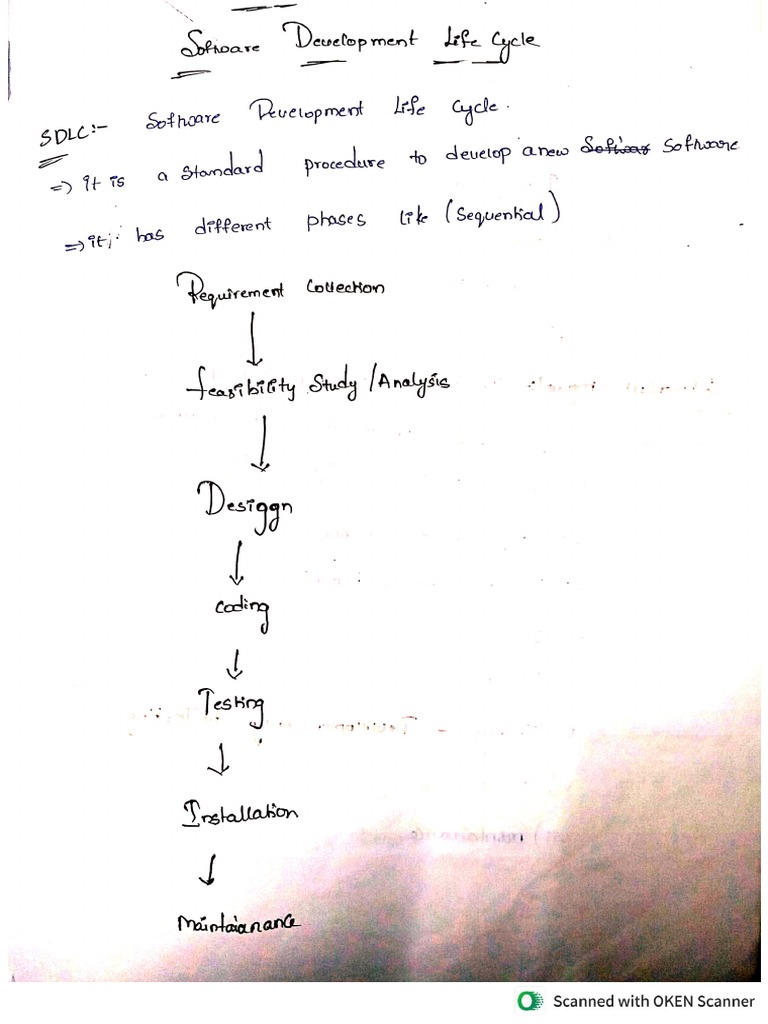 Software Development Life Cycle
SDLC:- Software Development Life Cycle.
⇒ it is a standard procedure to develop a new Softwar Software
⇒ it, has different phases like (Sequential)
Requirement Collection
↓
feasibility Study / Analysis
↓
Desiggn
↓
Coding
↓
Testing
↓
Installation
↓
Maintaianance
Scanned with OKEN Scanner